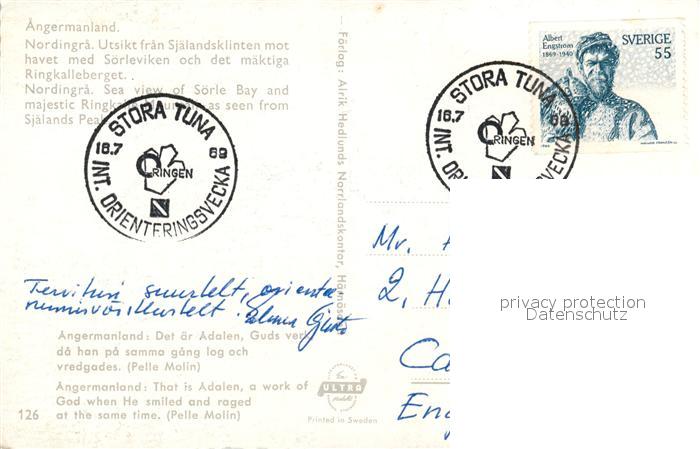 Ångermanland.
Nordingrå. Utsikt från Själandsklinten mot
havet med Sörleviken och det mäktiga
Ringkalleberget. .
Nordingrå. Sea view of Sörle Bay and
majestic Ringkalle Mountain as seen from
Själands Peak
STORA TUNA
16.7 69
O-RINGEN
INT. ORIENTERINGSVECKA
Förlag: Alrik Hedlunds Norrlandskontor, Härnösand
Albert
Engström
1869-1940
SVERIGE
55
STORA TUNA
16.7 69
O-RINGEN
INT. ORIENTERINGSVECKA
Mr.
2, H
Ca
Eng
privacy protection
Datenschutz
Tervitusi suurtelt, orientee
rumisvõistlustelt.
Ångermanland: Det är Ådalen, Guds verk
då han på samma gång log och
vredgades. (Pelle Molin)
Ångermanland: That is Ådalen, a work of
God when He smiled and raged
at the same time. (Pelle Molin)
126
ULTRA
Printed in Sweden